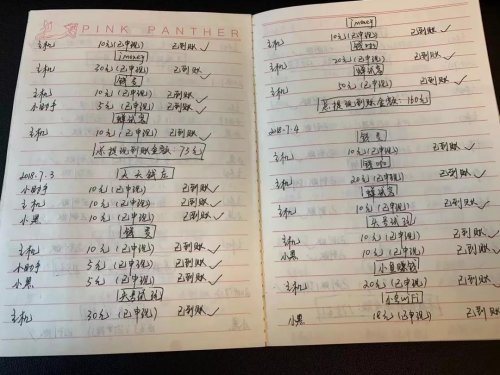 PINK PANTHER
主机 10元(已申现) 已到账✓
imoney
主机 20元(已申现) 已到账✓
主机 10元(已申现) 已到账✓
小射手 5元(已申现) 已到账✓
主机 10元(已申现) 已到账✓
总提现到账金额:75元
2018.7.3 天天钱庄
小射手 10元(已申现) 已到账✓
主机 10元(已申现) 已到账✓
小黑 10元(已申现) 已到账✓
主机 10元(已申现) 已到账✓
小射手 5元(已申现) 已到账✓
小黑 5元(已申现) 已到账✓
头号试玩
主机 30元(已申现) 已到账✓
imoney
主机 10元(已申现) 已到账✓
钱咖
主机 20元(已申现) 已到账✓
主机 50元(已申现) 已到账✓
总提现到账金额:160元
2018.7.4
主机 10元(已申现) 已到账✓
钱咖
主机 20元(已申现) 已到账✓
主机 10元(已申现) 已到账✓
头号试玩
主机 10元(已申现) 已到账✓
小黑 10元(已申现) 已到账✓
小鱼赚钱
主机 20元(已申现) 已到账✓
小黑 18元(已申现) 已到账